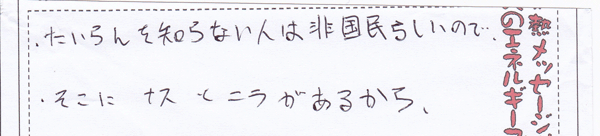 ・たいらんを知らない人は非国民らしいので、
・そこに ナスとニラがあるから、
熱メッセージ、
のエネルギー